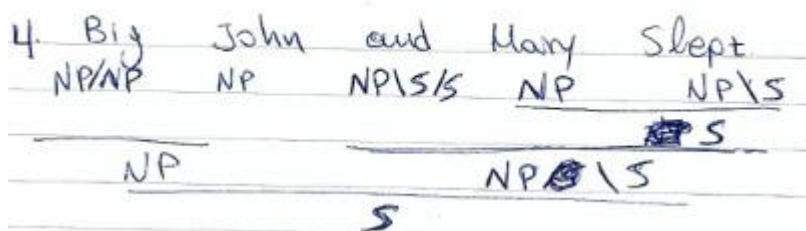 4. Big John and Mary Slept
NP/NP NP NP\S/S NP NP\S
S
NP NP \ S
S